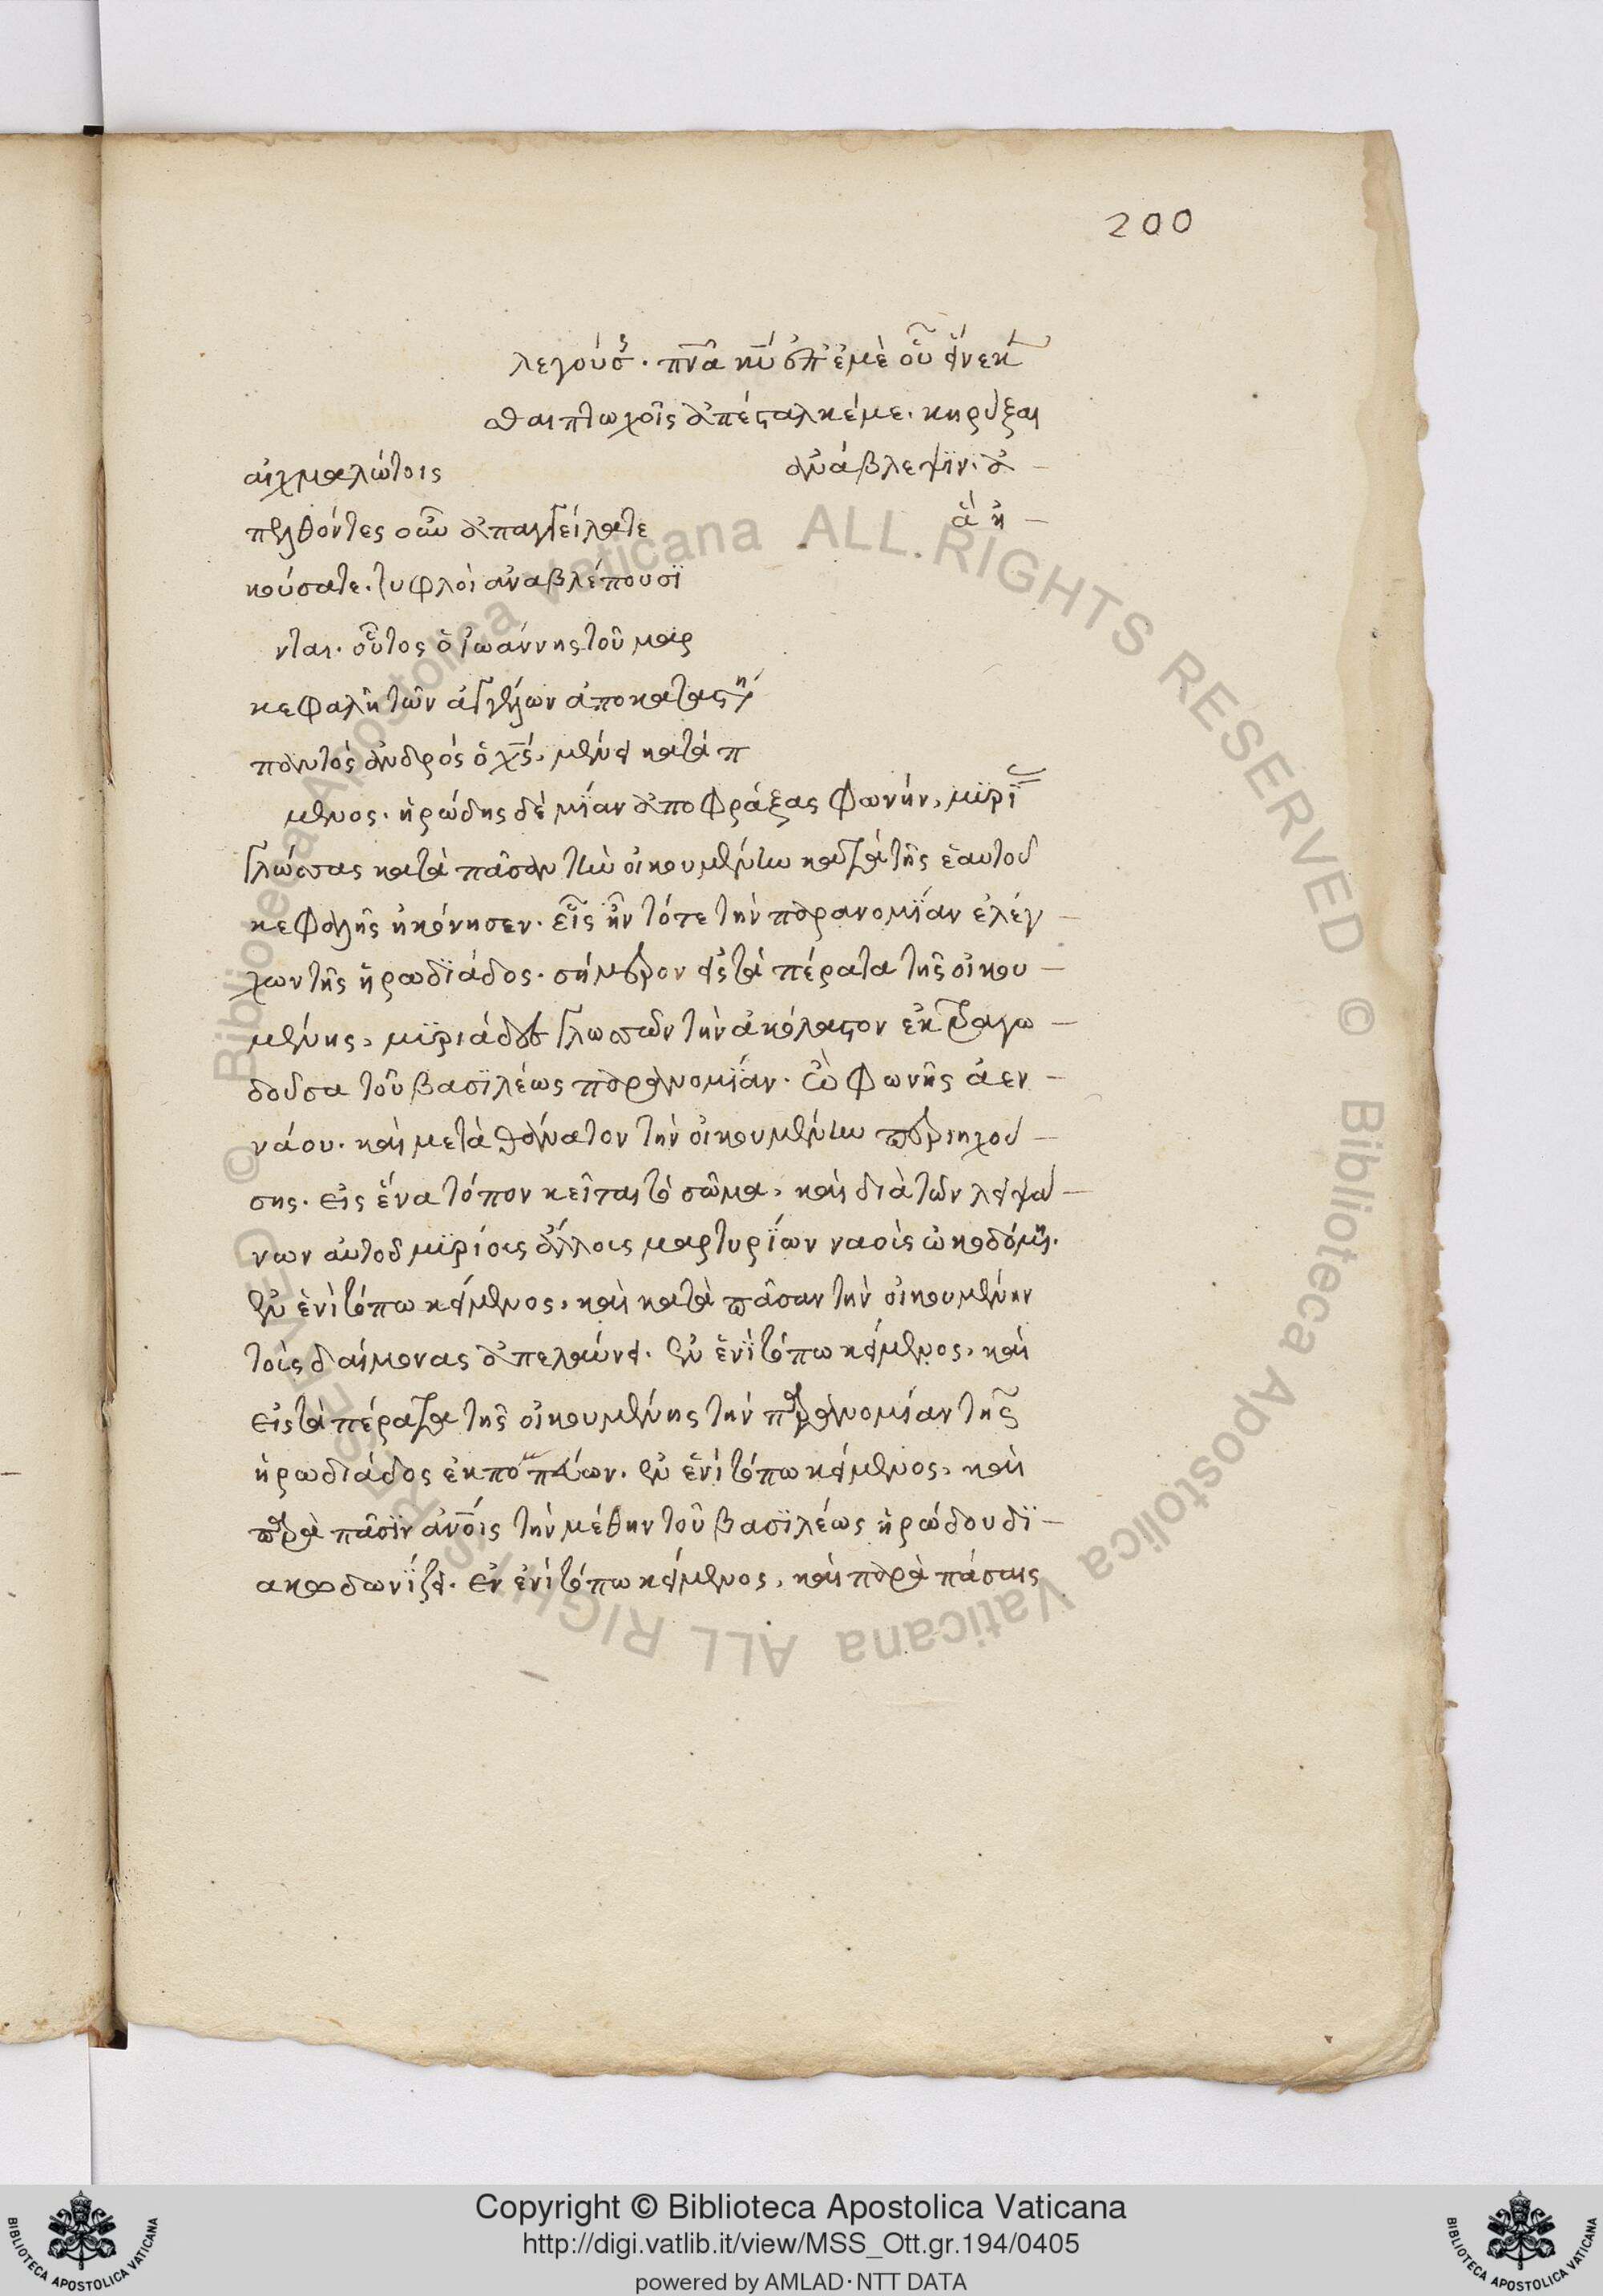 200
λεγούσης. πνα κυ ἐπ' ἐμὲ οὗ εἵνεκεν
θαι πτωχοῖς ἀπέσταλκέ με. κηρύξαι
αἰχμαλώτοις ἀνάβλεψϊν. ἀ
πελθόντες οὖν ἀπαγγείλατε ἅ ἠ
κούσατε. τυφλοὶ ἀναβλέπουσϊ
νται. οὗτος ὁ ἰωάννης τοῦ μαρ
κεφαλὴ τῶν ἀγγέλων ἀποκαταστη
παντὸς ἀνδρός ὁ χς. μένει κατὰ π
μενος. ἡρώδης δὲ μΐαν ἀποφράξας φωνήν, μϋρΐ
γλώσσας κατὰ πᾶσαν τὴν οἰκουμένην κατὰ τῆς ἑαυτοῦ
κεφαλῆς ἠκόνησεν. εἷς ἦν τότε τὴν παρανομΐαν ἐλέγ
χων τῆς ἡρωδϊάδος. σήμερον εἰς τὰ πέρατα τῆς οἰκου
μένης, μϋριάδες γλωσσῶν τὴν ἀκόλαστον ἐκτραγω
δοῦσα τοῦ βασϊλέως παρανομΐαν. ὢ φωνῆς ἀεν
νάου. καὶ μετὰ θάνατον τὴν οἰκουμένην περιηχού
σης. εἰς ἕνα τόπον κεῖται τὸ σῶμα, καὶ διὰ τῶν λειψά
νων αὐτοῦ μϋρίοις ἄλλοις μαρτυρΐων ναοὶς ὠκοδόμη.
ἐν ἑνὶ τόπω κείμενος, καὶ κατὰ πᾶσαν τὴν οἰκουμένην
τοὶς δαίμονας ἀπελαύνει. ἐν ἑνῒ τόπω κείμενος, καὶ
εἰς τὰ πέρατα τῆς οἰκουμένης τὴν παρανομίαν τῆς
ἡρωδιάδος ἐκπομπεύων. ἐν ἑνὶ τόπω κείμενος, καὶ
παρὰ πᾶσϊν ἀνοις τὴν μέθην τοῦ βασϊλέως ἡρώδου δϊ
ακωδωνΐζει. ἐν ἑνὶ τόπω κείμενος, καὶ παρὰ πάσαις
Copyright © Biblioteca Apostolica Vaticana
http://digi.vatlib.it/view/MSS_Ott.gr.194/0405
powered by AMLAD·NTT DATA
BIBLIOTECA APOSTOLICA VATICANA
BIBLIOTECA APOSTOLICA VATICANA
© Biblioteca Apostolica Vaticana ALL RIGHTS RESERVED © Biblioteca Apostolica Vaticana ALL RIGHTS RESERVED